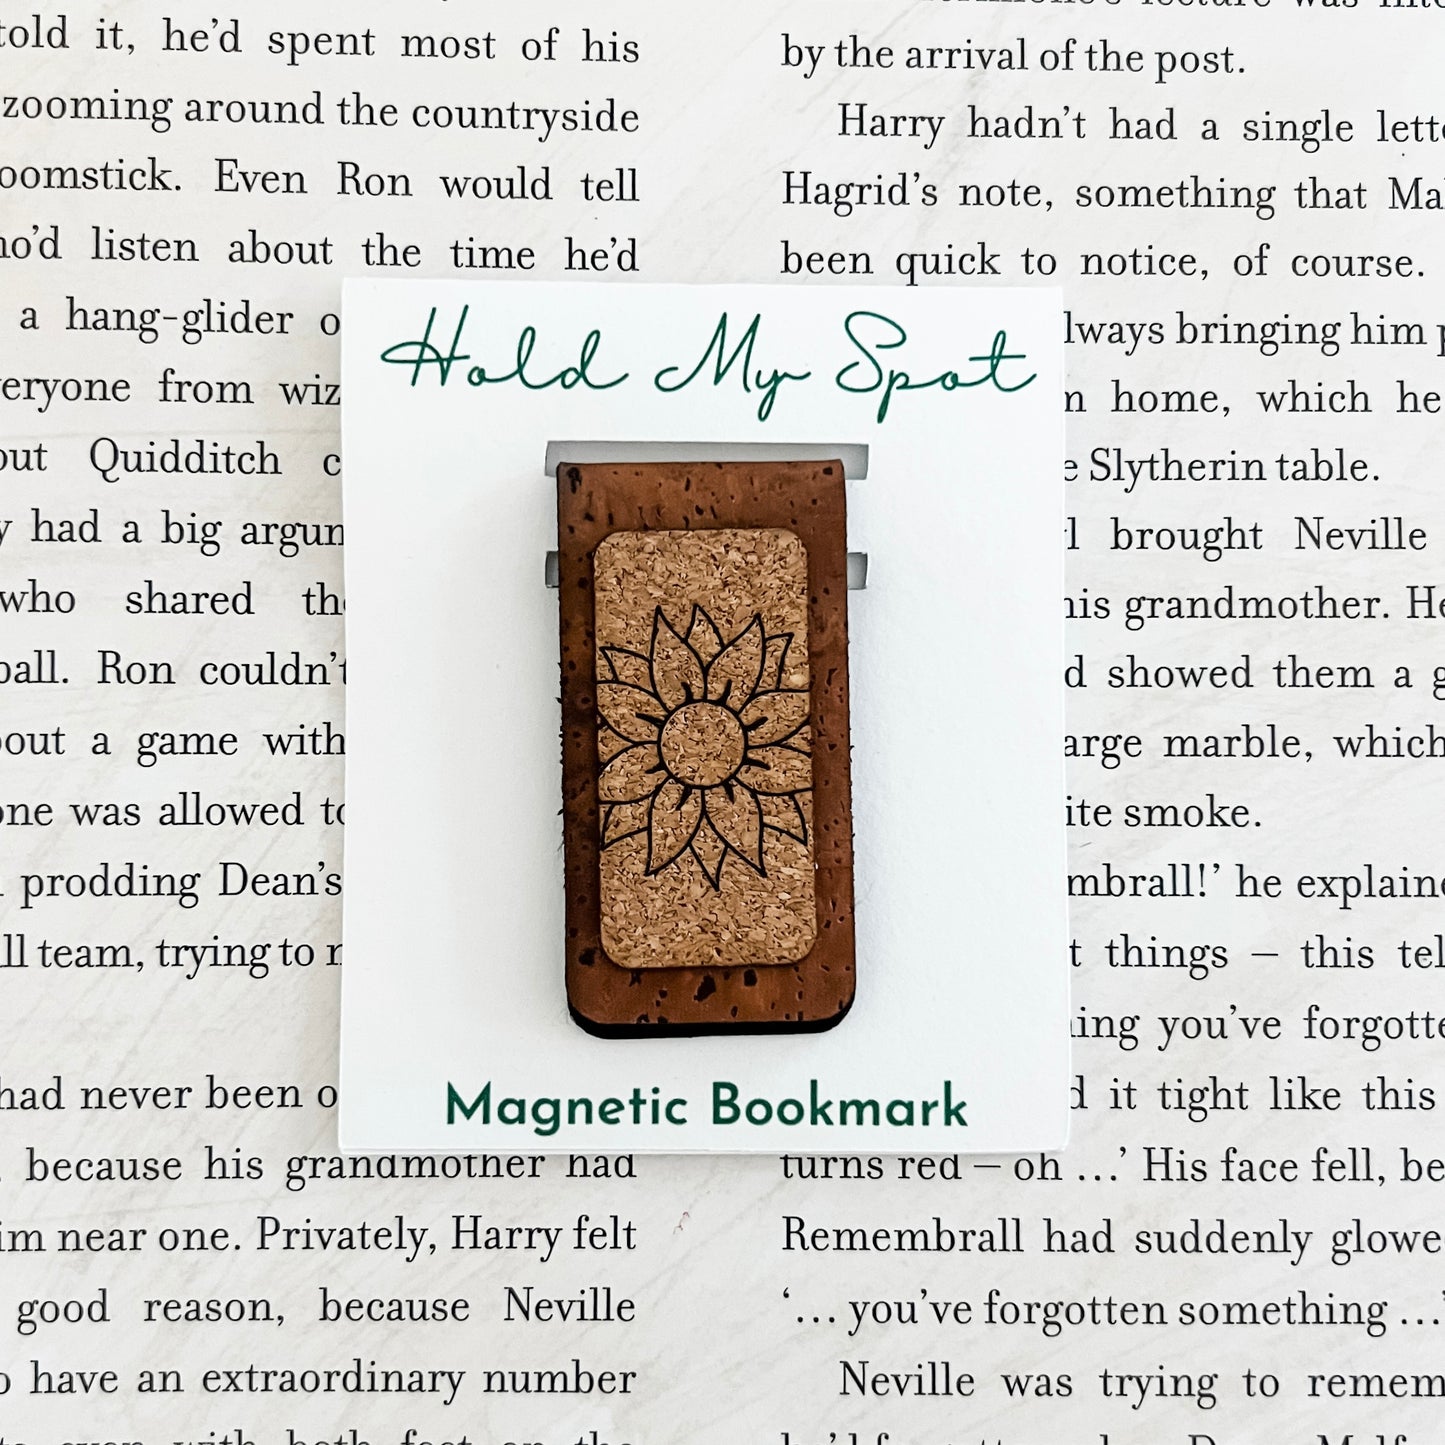 told it, he'd spent most of his
zooming around the countryside
oomstick. Even Ron would tell
ho'd listen about the time he'd
a hang-glider o
veryone from wiz
out Quidditch c
y had a big argun
who shared the
ball. Ron couldn't
bout a game with
one was allowed to
prodding Dean's
ll team, trying to r
had never been o
because his grandmother had
im near one. Privately, Harry felt
good reason, because Neville
o have an extraordinary number
even with both feet on the
lecture was inte
by the arrival of the post.
Harry hadn't had a single lette
Hagrid's note, something that Mal
been quick to notice, of course.
lways bringing him p
m home, which he
e Slytherin table.
l brought Neville
his grandmother. He
d showed them a g
arge marble, which
ite smoke.
mbrall!' he explaine
t things – this tel
ing you've forgotte
d it tight like this
turns red – oh ...' His face fell, be
Remembrall had suddenly glowe
'... you've forgotten something ...'
Neville was trying to remem
Hold My Spot
Magnetic Bookmark